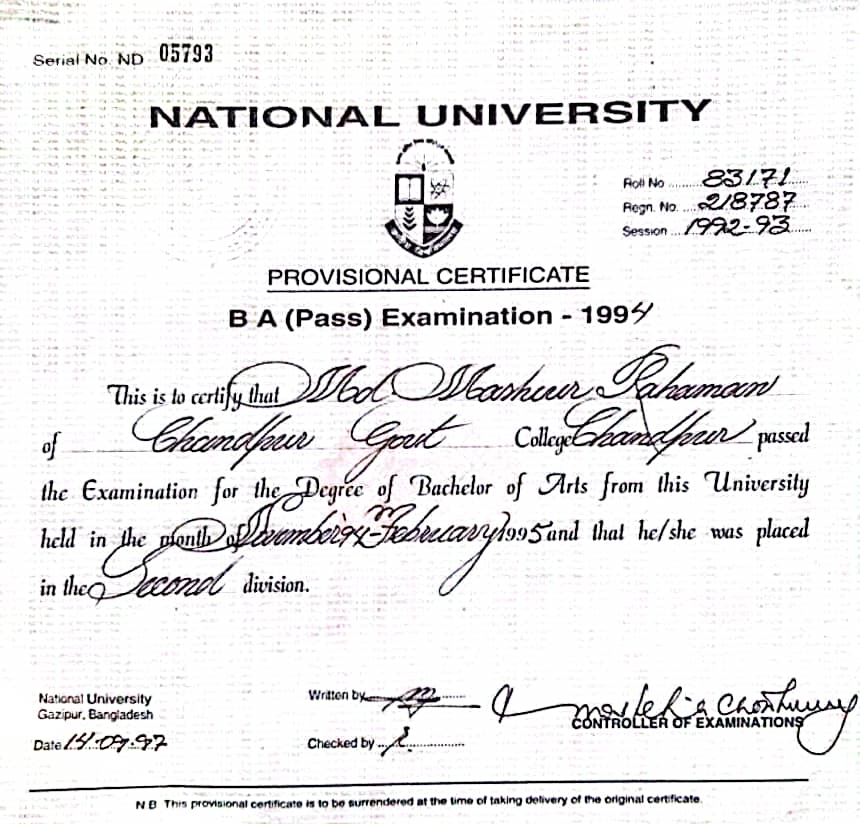 Serial No. ND 05793
NATIONAL UNIVERSITY
Roll No ........ 83171
Regn. No. .... 218787
Session ... 1992-93
PROVISIONAL CERTIFICATE
B A (Pass) Examination - 1994
This is to certify that Md Mashiur Rahaman
of Chandpur Govt College Chandpur passed
the Examination for the Degree of Bachelor of Arts from this University
held in the month of 94-February 1995 and that he/she was placed
in the Second division.
National University
Gazipur, Bangladesh
Date 14.09.97
Written by
Checked by
CONTROLLER OF EXAMINATIONS
N B This provisional certificate is to be surrendered at the time of taking delivery of the original certificate.